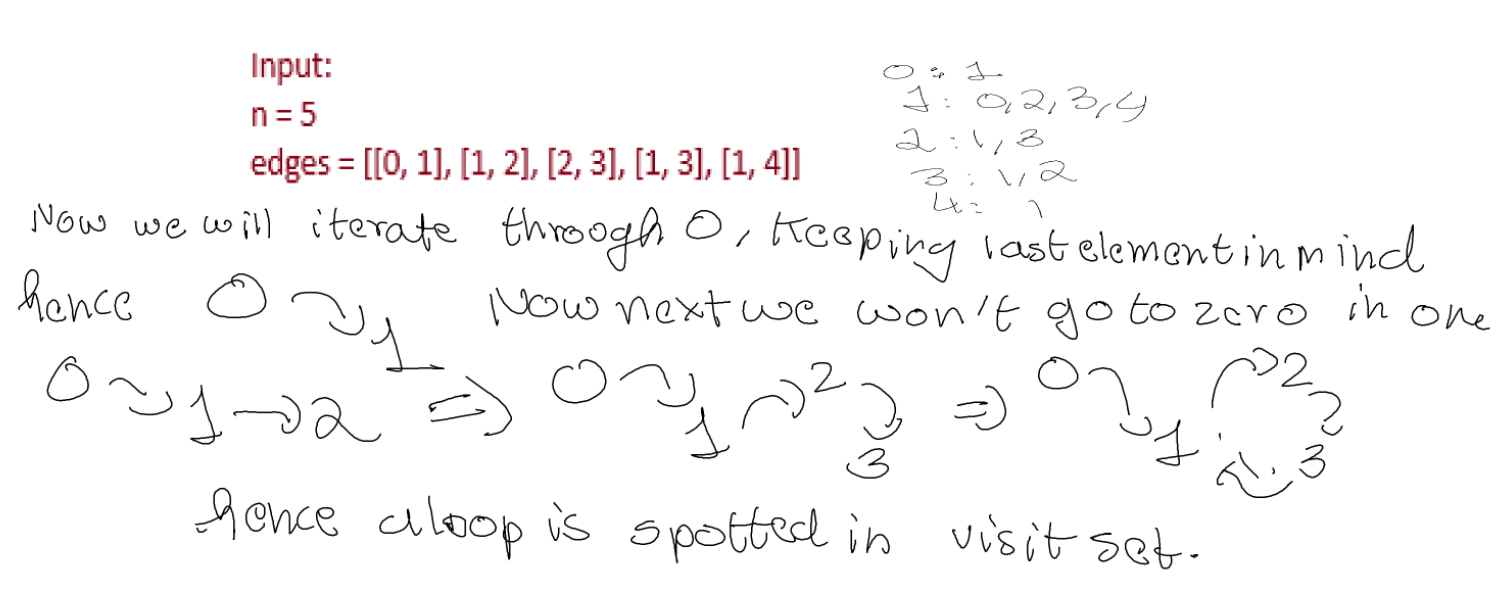 Input:
n = 5
edges = [[0, 1], [1, 2], [2, 3], [1, 3], [1, 4]]
0: 1
1: 0,2,3,4
2: 1,3
3: 1,2
4: 1
Now we will iterate through 0, Keeping last element in mind
hence 0 1 Now next we won't go to zero in one
0 1 → 2 ⇒ 0 1 2 3 ⇒ 0 1 2 3
hence a loop is spotted in visit set.